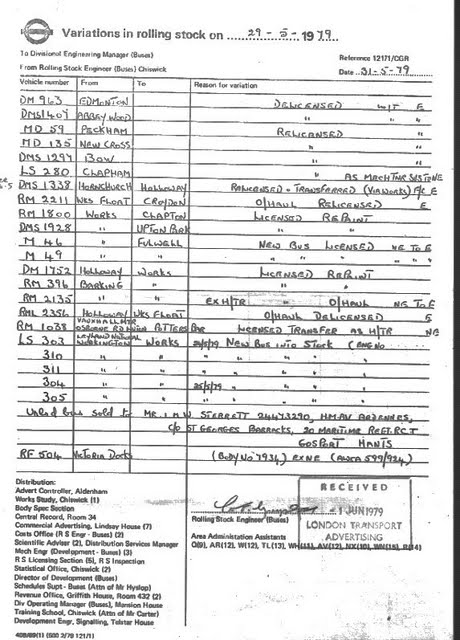 Variations in rolling stock on 29-5-1979
To Divisional Engineering Manager (Buses)
Reference 12171/CGR
From Rolling Stock Engineer (Buses) Chiswick
Date 31-5-79
Vehicle number From To Reason for variation
DM 963 EDMONTON DELICENSED W/T E
DMS 1407 ABBEY WOOD " "
MD 59 PECKHAM RELICENSED "
MD 135 NEW CROSS " "
DMS 1297 BOW " "
LS 280 CLAPHAM " AS MECH TNR SYSTONE
DMS 1338 HORNCHURCH HOLLOWAY RELICENSED & TRANSFERRED (VIA WORKS) F/C E
RM 2211 WKS FLOAT CROYDON O/HAUL RELICENSED E
RM 1800 WORKS CLAPTON LICENSED REPAINT
DMS 1928 " UPTON PARK " "
M 46 " FULWELL NEW BUS LICENSED NE TO E
M 49 " " " " " "
DM 1752 HOLLOWAY WORKS LICENSED REPAINT
RM 396 BARKING " " "
RM 2135 " " EX H/TR O/HAUL NE TO E
RML 2356 HOLLOWAY WKS FLOAT O/HAUL DELICENSED E
RM 1038 VAUXHALL MTR OSBORNE RD POTTERS BAR LICENSED TRANSFER AS H/TR NE
LS 303 LEYLAND NATIONAL WORKINGTON WORKS 24/5/79 NEW BUS INTO STOCK (ENG NO
310 " " " " " "
311 " " " " " "
304 " " 25/5/79 " " "
305 " " " " " "
Used bus sold to MR. I H W STERRETT 24473290, HMAV ARDENNES,
c/o ST GEORGES BARRACKS, 20 MARITIME REGT. RCT
GOSPORT HANTS
RF 504 Victoria Docks (BODY NO 7934) EX NE
Distribution:
Advert Controller, Aldenham
Works Study, Chiswick (1)
Body Spec Section
Central Record, Room 34
Commercial Advertising, Lindsay House (7)
Costs Office (R S Engr - Buses) (2)
Scientific Adviser (2), Distribution Services Manager
Mech Engr (Development - Buses) (3)
R S Licensing Section (5), R S Inspection
Statistical Office, Chiswick (2)
Director of Development (Buses)
Schedules Supt - Buses (Attn of Mr Hyslop)
Revenue Office, Griffith House, Room 432 (2)
Div Operating Manager (Buses), Mansion House
Training School, Chiswick (Attn of Mr Carter)
Development Engr, Signalling, Telstar House
Rolling Stock Engineer (Buses)
Area Administration Assistants
Q(9), AR(12), W(12), TL(13), WH(11), AV(12), NX(10), WN(15), B(4)
RECEIVED
-1 JUN 1979
LONDON TRANSPORT
ADVERTISING